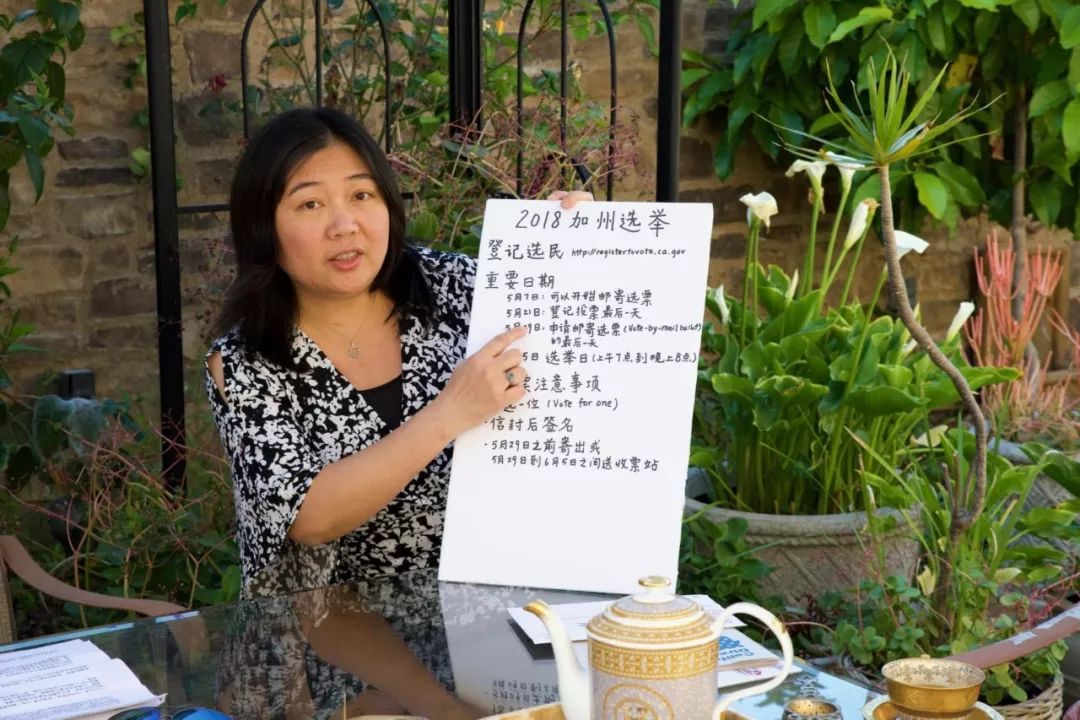 2018 加州选举
登记选民 http://registertovote.ca.gov
重要日期
5月7日: 可以开始邮寄选票
5月21日: 登记投票最后一天
5月29日: 申请邮寄选票 (Vote-by-mail ballot)
的最后一天
5日 选举日 (上午7点, 到晚上8点)
票注意事项
选一位 (Vote for one)
·信封后签名
·5月29日之前寄出或
5月29日到6月5日之间送收票站